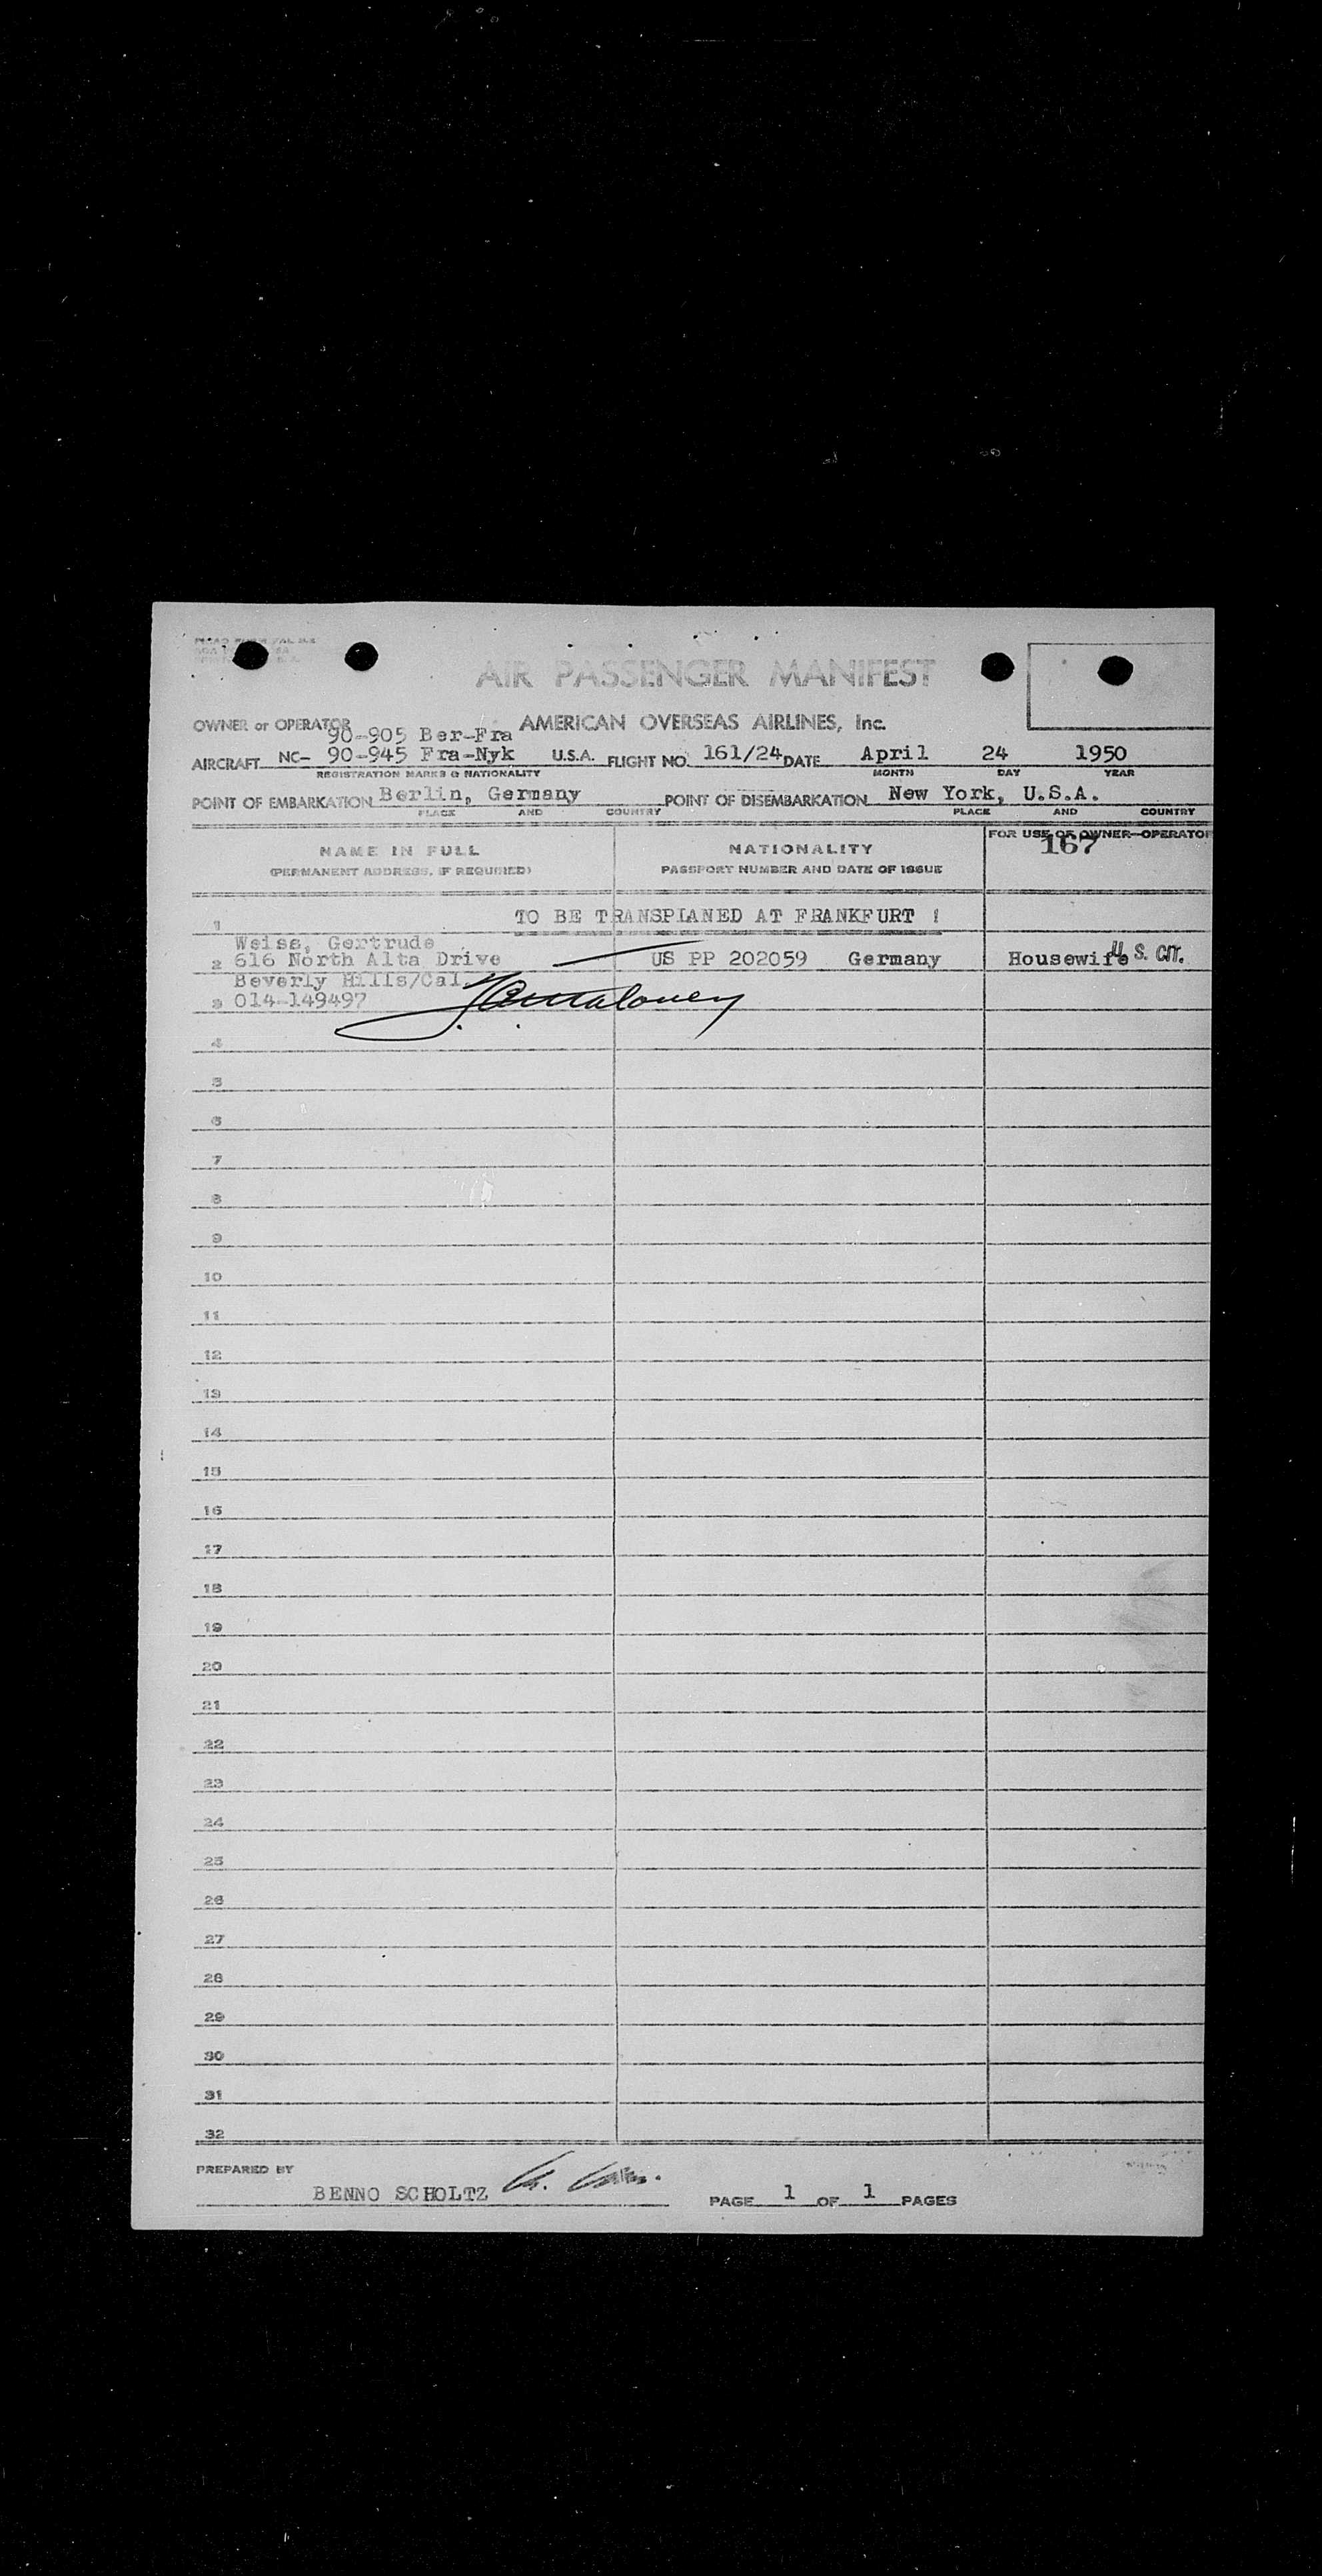 AIR PASSENGER MANIFEST
OWNER or OPERATOR AMERICAN OVERSEAS AIRLINES, Inc.
90-905 Ber-Fra
AIRCRAFT NC- 90-945 Fra-Nyk U.S.A. FLIGHT NO. 161/24 DATE April 24 1950
REGISTRATION MARKS & NATIONALITY MONTH DAY YEAR
POINT OF EMBARKATION Berlin, Germany POINT OF DISEMBARKATION New York, U.S.A.
PLACE AND COUNTRY PLACE AND COUNTRY
FOR USE OF OWNER—OPERATOR
167
NAME IN FULL NATIONALITY
(PERMANENT ADDRESS, IF REQUIRED) PASSPORT NUMBER AND DATE OF ISSUE
1 TO BE TRANSPLANED AT FRANKFURT !
Weiss, Gertrude
2 616 North Alta Drive US PP 202059 Germany Housewife U.S. CIT.
Beverly Hills/Cal.
3 014-149497
4
5
6
7
8
9
10
11
12
13
14
15
16
17
18
19
20
21
22
23
24
25
26
27
28
29
30
31
32
PREPARED BY
BENNO SCHOLTZ
PAGE 1 OF 1 PAGES